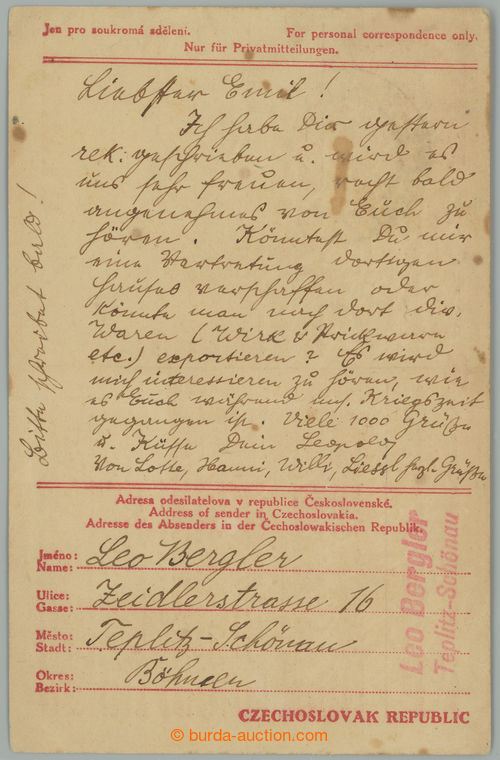 Jen pro soukromá sdělení. For personal correspondence only.
Nur für Privatmitteilungen.
Liebster Emil !
Ich habe Dir gestern
rek. geschrieben u. wird es
uns sehr freuen, recht bald
angenehmes von Euch zu
hören. Könntest Du mir
eine Vertretung dortigen
Hauses verschaffen oder
könnte man nach dort div.
Waren (Wirk & Strickwaren
etc.) exportieren? Es wird
mich interessieren zu hören, wie
es Euch während Kriegszeit
gegangen ist. Viele 1000 Grüße
u. Küsse Dein Leopold
Von Lotte, Hanni, Willi, Liessl Grüße
Bitte schreibet bald!
Adresa odesilatelova v republice Československé.
Address of sender in Czechoslovakia.
Adresse des Absenders in der Čechoslowakischen Republik.
Jméno:
Name: Leo Bergler
Ulice:
Gasse: Zeidlerstrasse 16
Město:
Stadt: Teplitz-Schönau
Okres:
Bezirk: Böhmen
Leo Bergler
Teplitz-Schönau
CZECHOSLOVAK REPUBLIC
© burda-auction.com